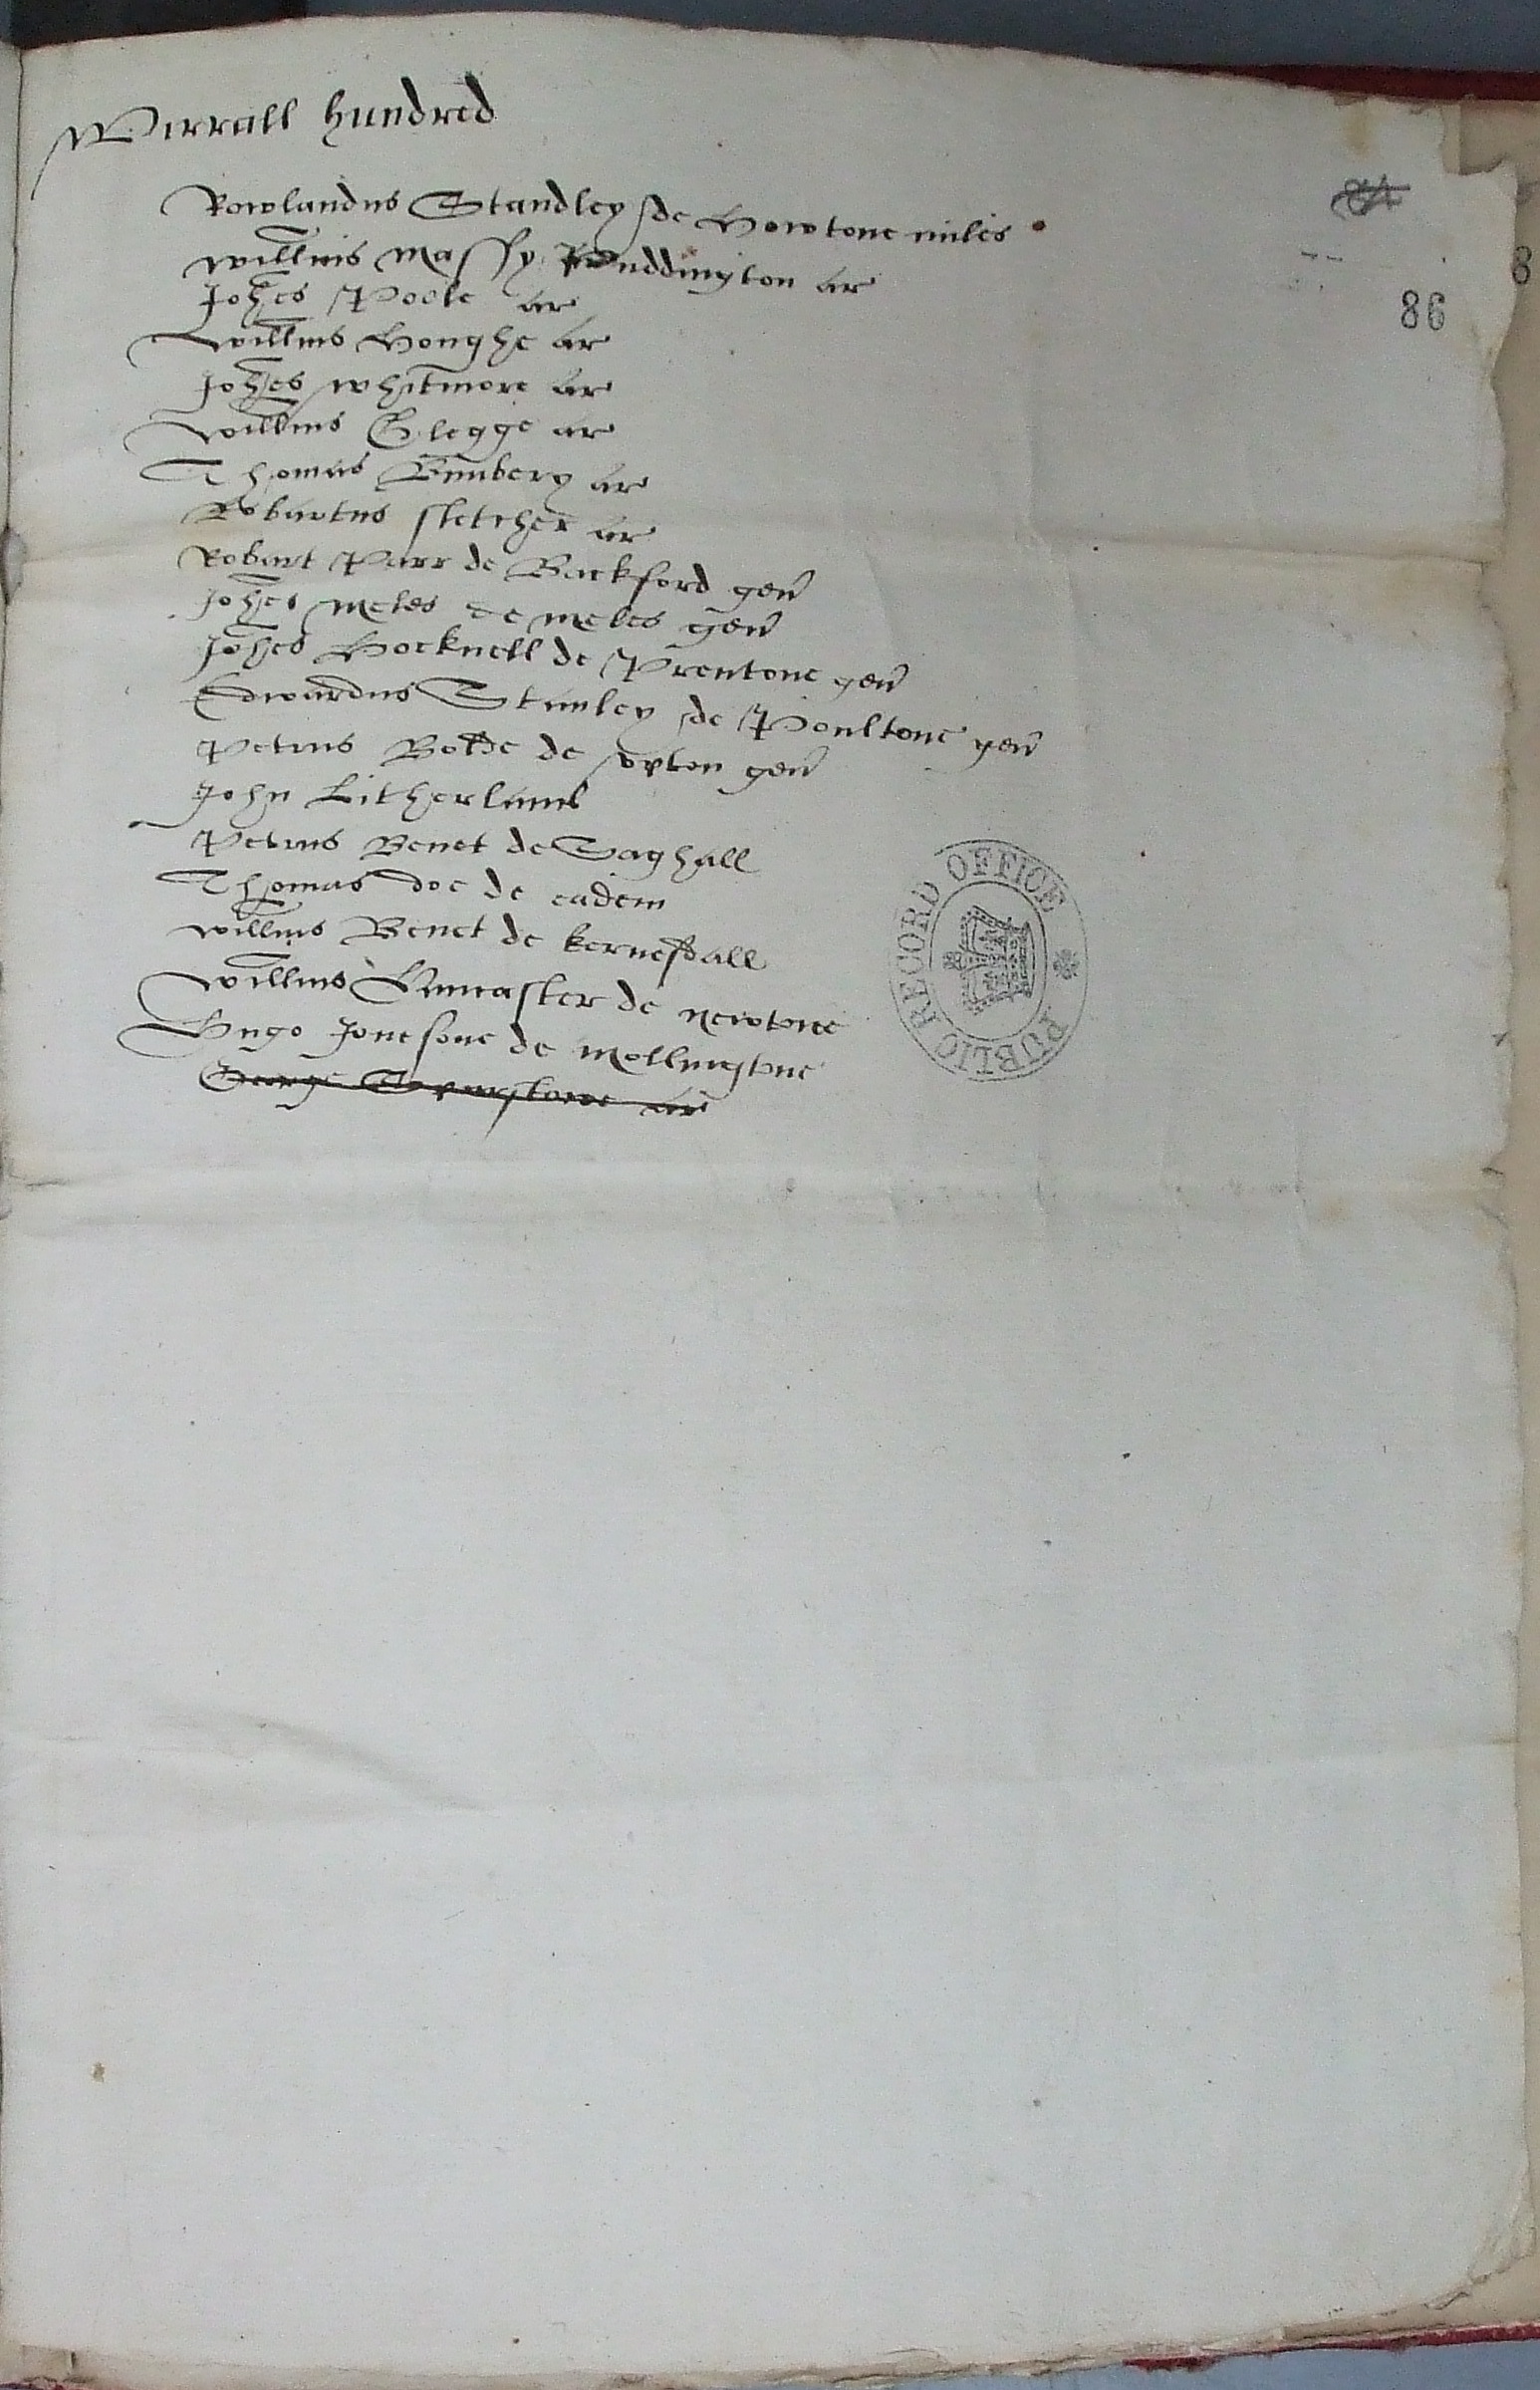 Wirrall hundred
84
86
8
Rowlandus Standley de Howtone miles
Willmis Massy Puddington ar
Johes Poole ar
Willms Houghe ar
Johes Whitmore ar
Willms Glegge ar
Thomas Bunbery ar
Robartus fletcher ar
Robart Parr de Backford gen
Johes Meles de Meles gen
Johes Hocknell de Prentone gen
Edwardus Stanley de Poultone gen
Petrus Bolde de upton gen
John Litherland
Petrus Benet de Saghall
Thomas doe de eadem
Willms Benet de kernesdall
Willms Lancaster de Newtone
Hugo Jonesone de Mollingtone
George ar
PUBLIC RECORD OFFICE